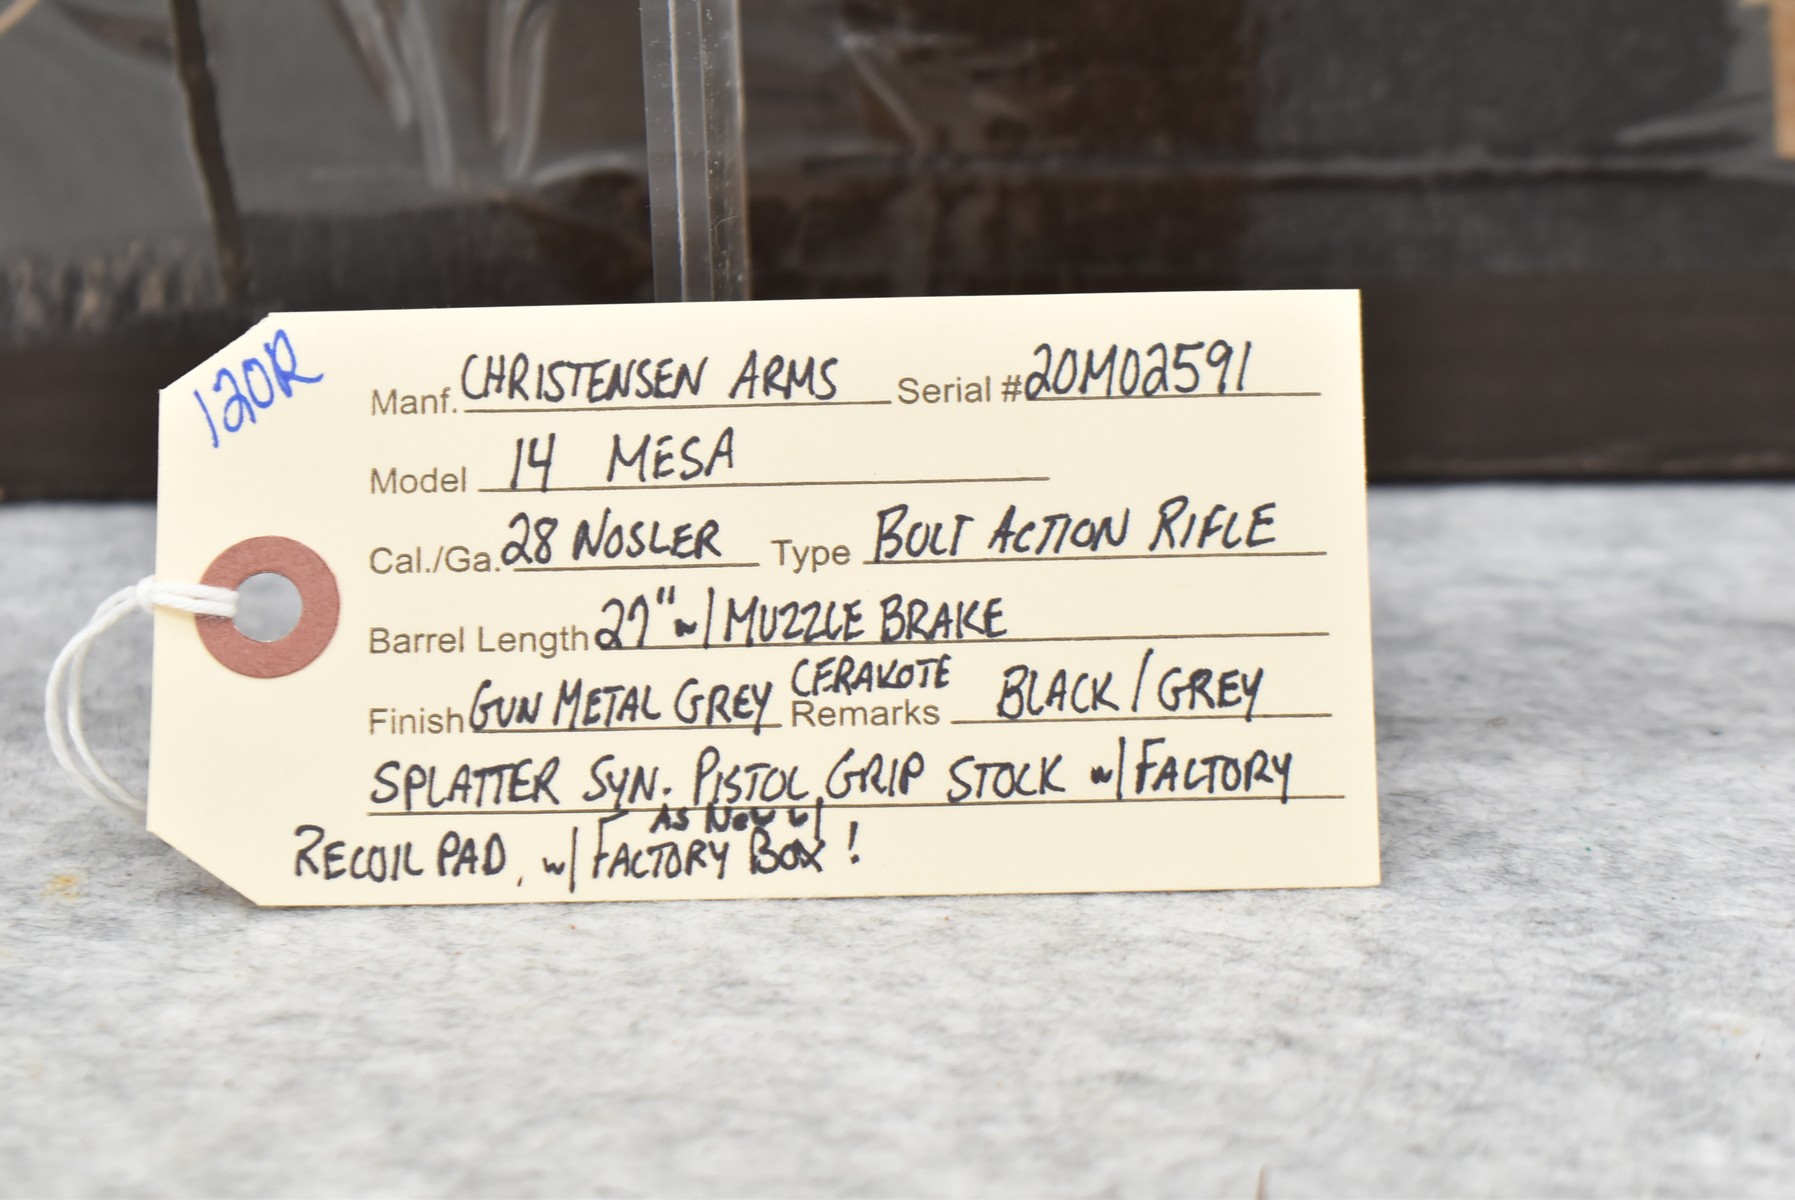 120R
Manf. CHRISTENSEN ARMS Serial # 20M02591
Model 14 MESA
Cal./Ga. 28 NOSLER Type BOLT ACTION RIFLE
Barrel Length 27" w/ MUZZLE BRAKE
Finish GUN METAL GREY CERAKOTE Remarks BLACK / GREY
SPLATTER SYN. PISTOL GRIP STOCK w/ FACTORY
AS NEW w/
RECOIL PAD, w/ FACTORY BOX !